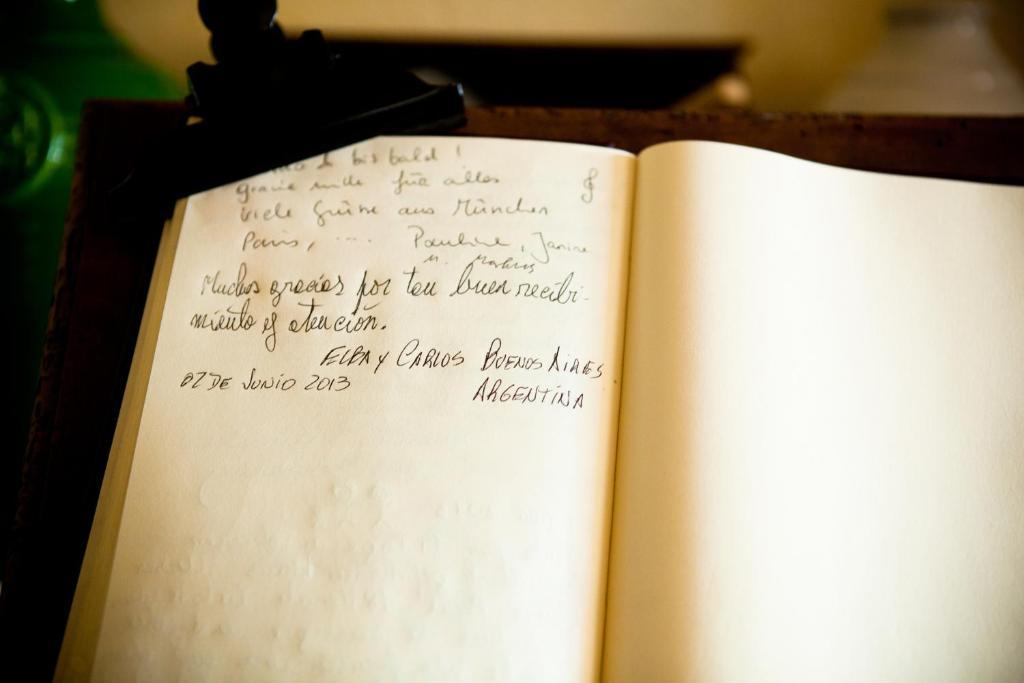 & bis bald !
grazie mile für alles
viele Grüsse aus München
Paris, .... Pauline, Janine
M. Markus
Muchas gracias por tan buen recibi-
miento y atención.
ELBA y CARLOS BUENOS AIRES
07 DE JUNIO 2013 ARGENTINA